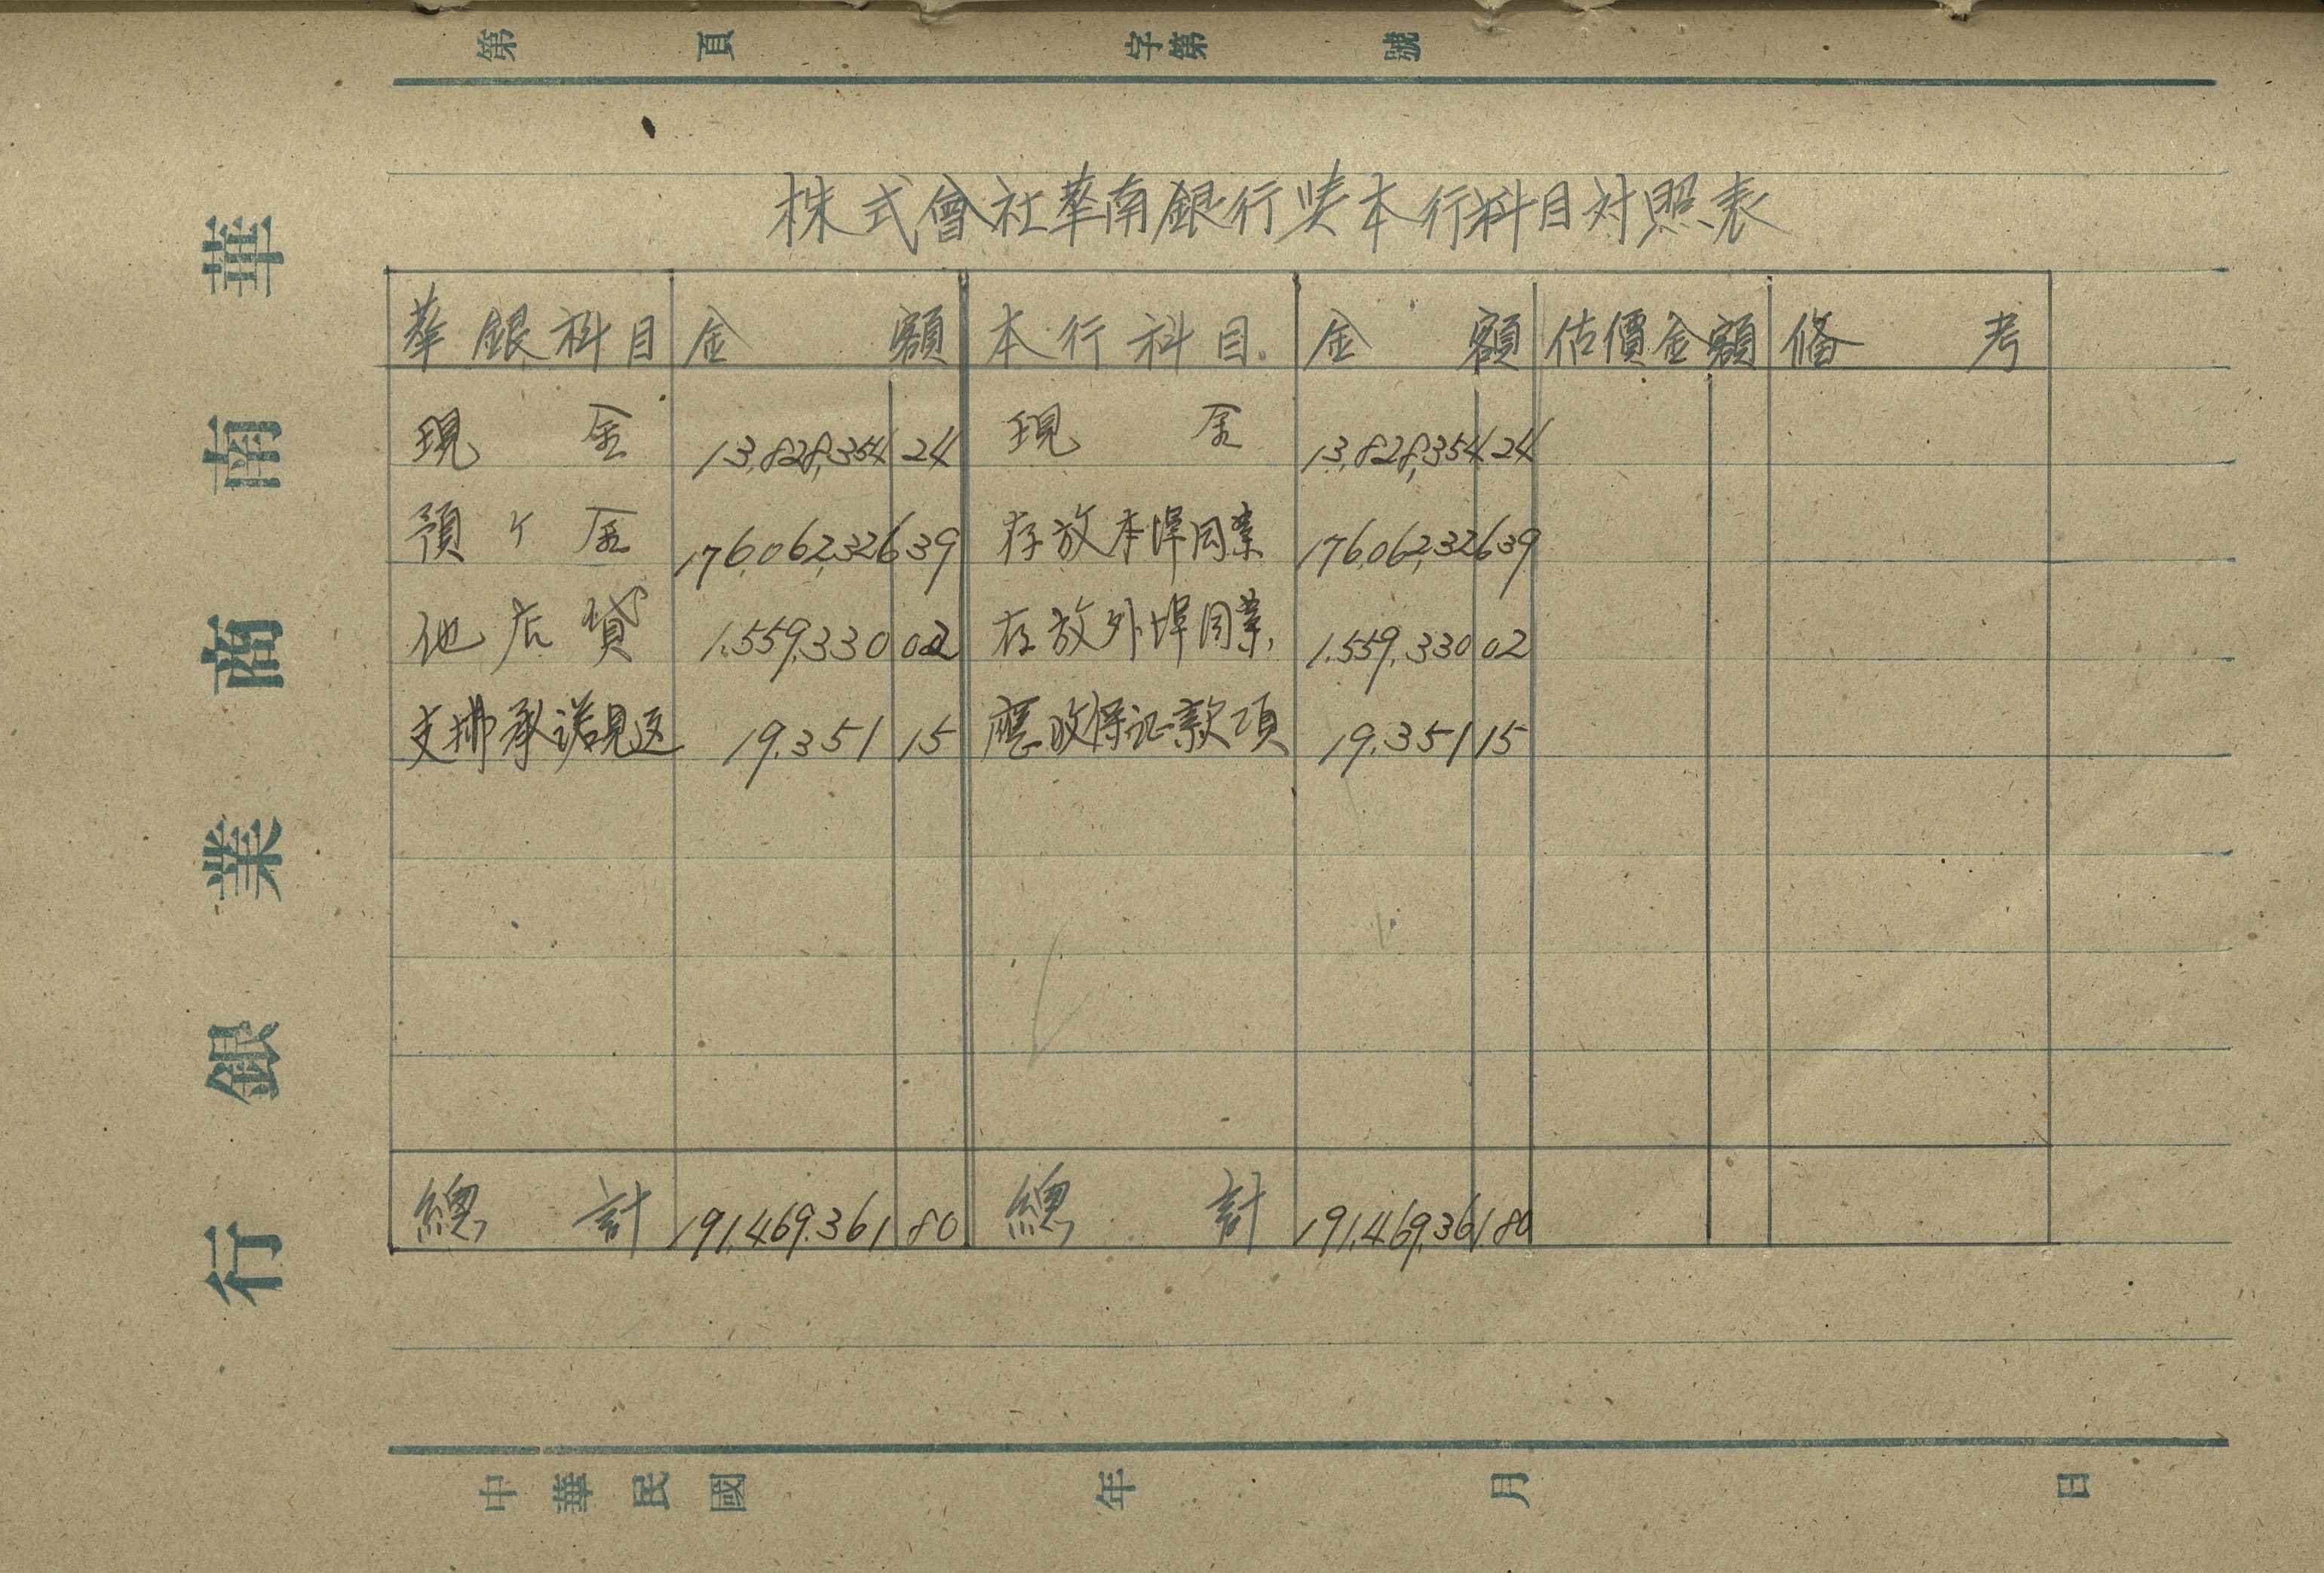 第 頁 字第 號
株式會社華南銀行與本行科目対照表
華銀科目 金額 本行科目 金額 估價金額 備考
現金 13,828,354 24 現金 13,828,354 24
預ケ金 176,062,326 39 存放本埠同業 176,062,326 39
他店貸 1,559,330 02 存放外埠同業 1,559,330 02
支拂承諾見返 19,351 15 應收保证款項 19,351 15
總計 191,469,361 80 總計 191,469,361 80
華南商業銀行
中華民國 年 月 日